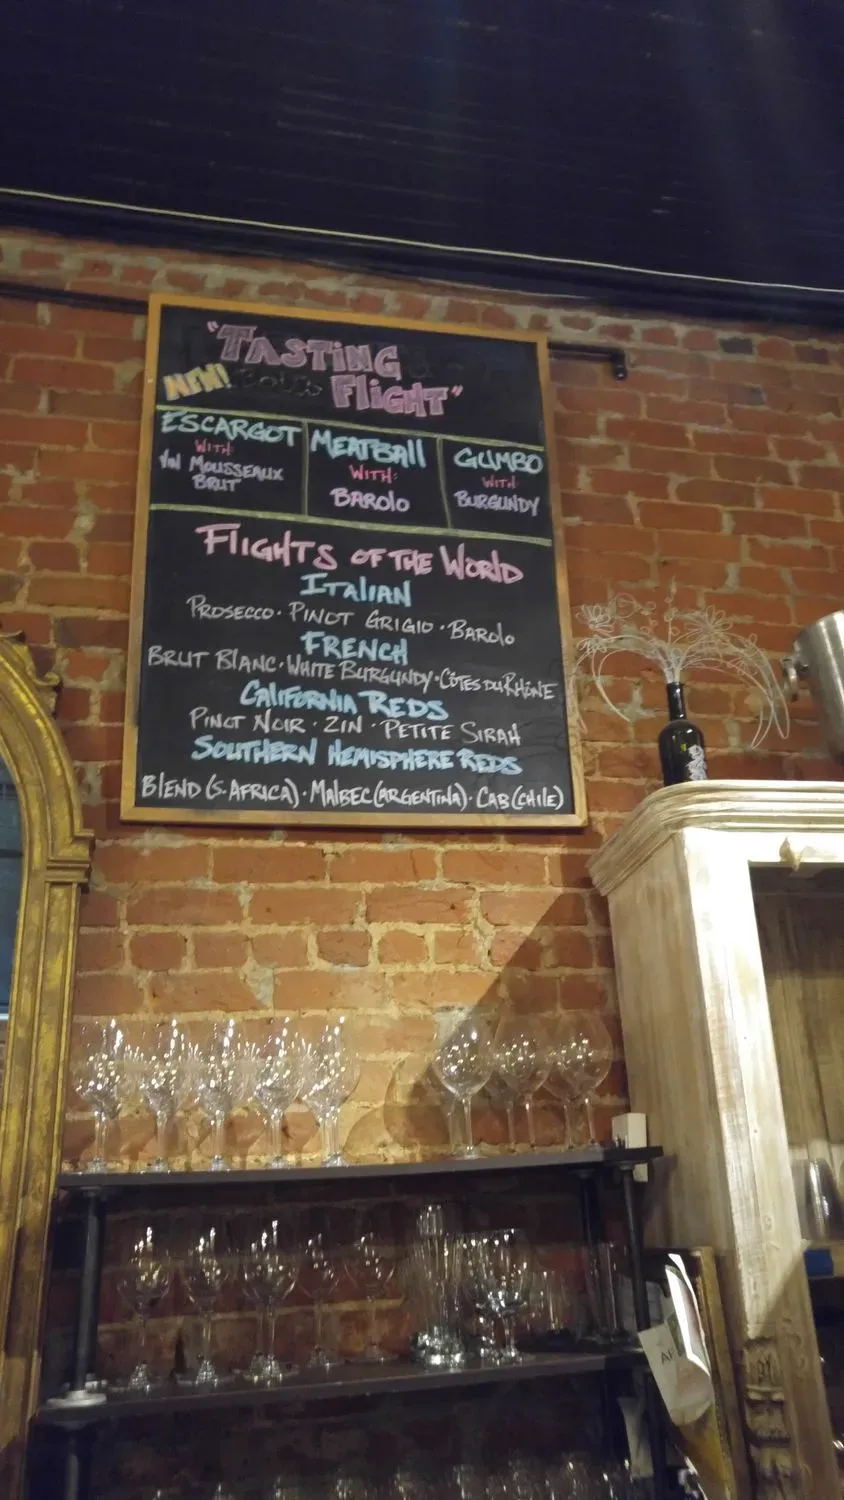 "TASTING
NEW! FLIGHT"
ESCARGOT
WITH:
VIN MOUSSEAUX
BRUT
MEATBALL
WITH:
BAROLO
GUMBO
WITH:
BURGUNDY
FLIGHTS OF THE WORLD
ITALIAN
PROSECCO · PINOT GRIGIO · BAROLO
FRENCH
BRUT BLANC · WHITE BURGUNDY · CÔTES DU RHÔNE
CALIFORNIA REDS
PINOT NOIR · ZIN · PETITE SIRAH
SOUTHERN HEMISPHERE REDS
BLEND (S. AFRICA) · MALBEC (ARGENTINA) · CAB (CHILE)